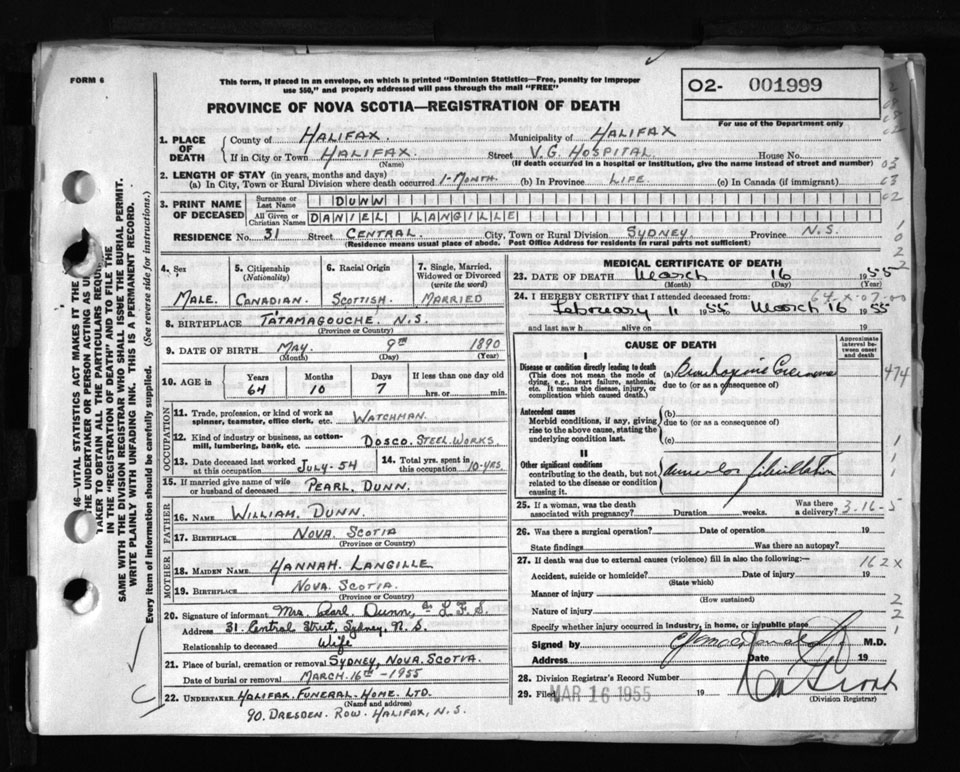 FORM 6
This form, if placed in an envelope, on which is printed "Dominion Statistics—Free, penalty for improper
use $50," and properly addressed will pass through the mail "FREE"
PROVINCE OF NOVA SCOTIA—REGISTRATION OF DEATH
02- 001999
For use of the Department only
1. PLACE OF DEATH
County of HALIFAX. Municipality of HALIFAX
If in City or Town HALIFAX. Street V.G. HOSPITAL. House No.
(Name) (If death occurred in a hospital or institution, give the name instead of street and number)
2. LENGTH OF STAY (in years, months and days)
(a) In City, Town or Rural Division where death occurred 1-MONTH. (b) In Province LIFE. (c) In Canada (if immigrant)
3. PRINT NAME OF DECEASED
Surname or Last Name DUNN
All Given or Christian Names DANIEL LANGILLE
RESIDENCE No. 31 Street CENTRAL. City, Town or Rural Division SYDNEY. Province N.S.
(Residence means usual place of abode. Post Office Address for residents in rural parts not sufficient)
4. Sex
MALE.
5. Citizenship (Nationality)
CANADIAN.
6. Racial Origin
SCOTTISH.
7. Single, Married, Widowed or Divorced (write the word)
MARRIED
8. BIRTHPLACE TATAMAGOUCHE. N.S.
(Province or Country)
9. DATE OF BIRTH MAY. 9th 1890
(Month) (Day) (Year)
10. AGE in
Years Months Days If less than one day old
64 10 7 hrs. or min.
OCCUPATION
11. Trade, profession, or kind of work as spinner, teamster, office clerk, etc. WATCHMAN.
12. Kind of industry or business, as cotton-mill, lumbering, bank, etc. DOSCO. STEEL WORKS
13. Date deceased last worked at this occupation JULY-54
14. Total yrs. spent in this occupation 10-YRS.
15. If married give name of wife or husband of deceased PEARL. DUNN.
FATHER
16. NAME WILLIAM. DUNN.
17. BIRTHPLACE NOVA. SCOTIA
(Province or Country)
MOTHER
18. MAIDEN NAME HANNAH. LANGILLE
19. BIRTHPLACE NOVA. SCOTIA.
(Province or Country)
20. Signature of informant Mrs. Pearl. Dunn, L. F. S.
Address 31. Central Street, Sydney, N. S.
Relationship to deceased Wife
21. Place of burial, cremation or removal SYDNEY, NOVA. SCOTIA.
Date of burial or removal MARCH. 16th - 1955
22. UNDERTAKER HALIFAX. FUNERAL. HOME. LTD.
(Name and address)
90. DRESDEN. ROW. HALIFAX, N.S.
MEDICAL CERTIFICATE OF DEATH
23. DATE OF DEATH March 16 1955
(Month) (Day)
24. I HEREBY CERTIFY that I attended deceased from:
February 11 1955 to March 16 1955
and last saw h alive on 19
CAUSE OF DEATH
Approximate interval between onset and death
I
Disease or condition directly leading to death
(This does not mean the mode of dying, e.g., heart failure, asthenia, etc. It means the disease, injury, or complication which caused death.)
(a)
due to (or as a consequence of)
Antecedent causes
Morbid conditions, if any, giving rise to the above cause, stating the underlying condition last.
(b)
due to (or as a consequence of)
(c)
II
Other significant conditions
contributing to the death, but not related to the disease or condition causing it.
fibrillation
25. If a woman, was the death associated with pregnancy? Duration weeks. Was there a delivery? 3.16-5
26. Was there a surgical operation? Date of operation 19
State findings Was there an autopsy?
27. If death was due to external causes (violence) fill in also the following:— 162X
Accident, suicide or homicide? Date of injury 19
(State which)
Manner of injury
(How sustained)
Nature of injury
Specify whether injury occurred in industry, in home, or in public place
Signed by M.D.
Address Date 19
28. Division Registrar's Record Number
29. Filed MAR 16 1955 19
(Division Registrar)
46—VITAL STATISTICS ACT MAKES IT THE
THE UNDERTAKER OR PERSON ACTING AS
TAKER TO OBTAIN ALL THE PARTICULARS REQUI
IN THE "REGISTRATION OF DEATH" AND TO FILE THE
SAME WITH THE DIVISION REGISTRAR WHO SHALL ISSUE THE BURIAL PERMIT.
WRITE PLAINLY WITH UNFADING INK. THIS IS A PERMANENT RECORD.
Every item of information should be carefully supplied. (See reverse side for instructions.)